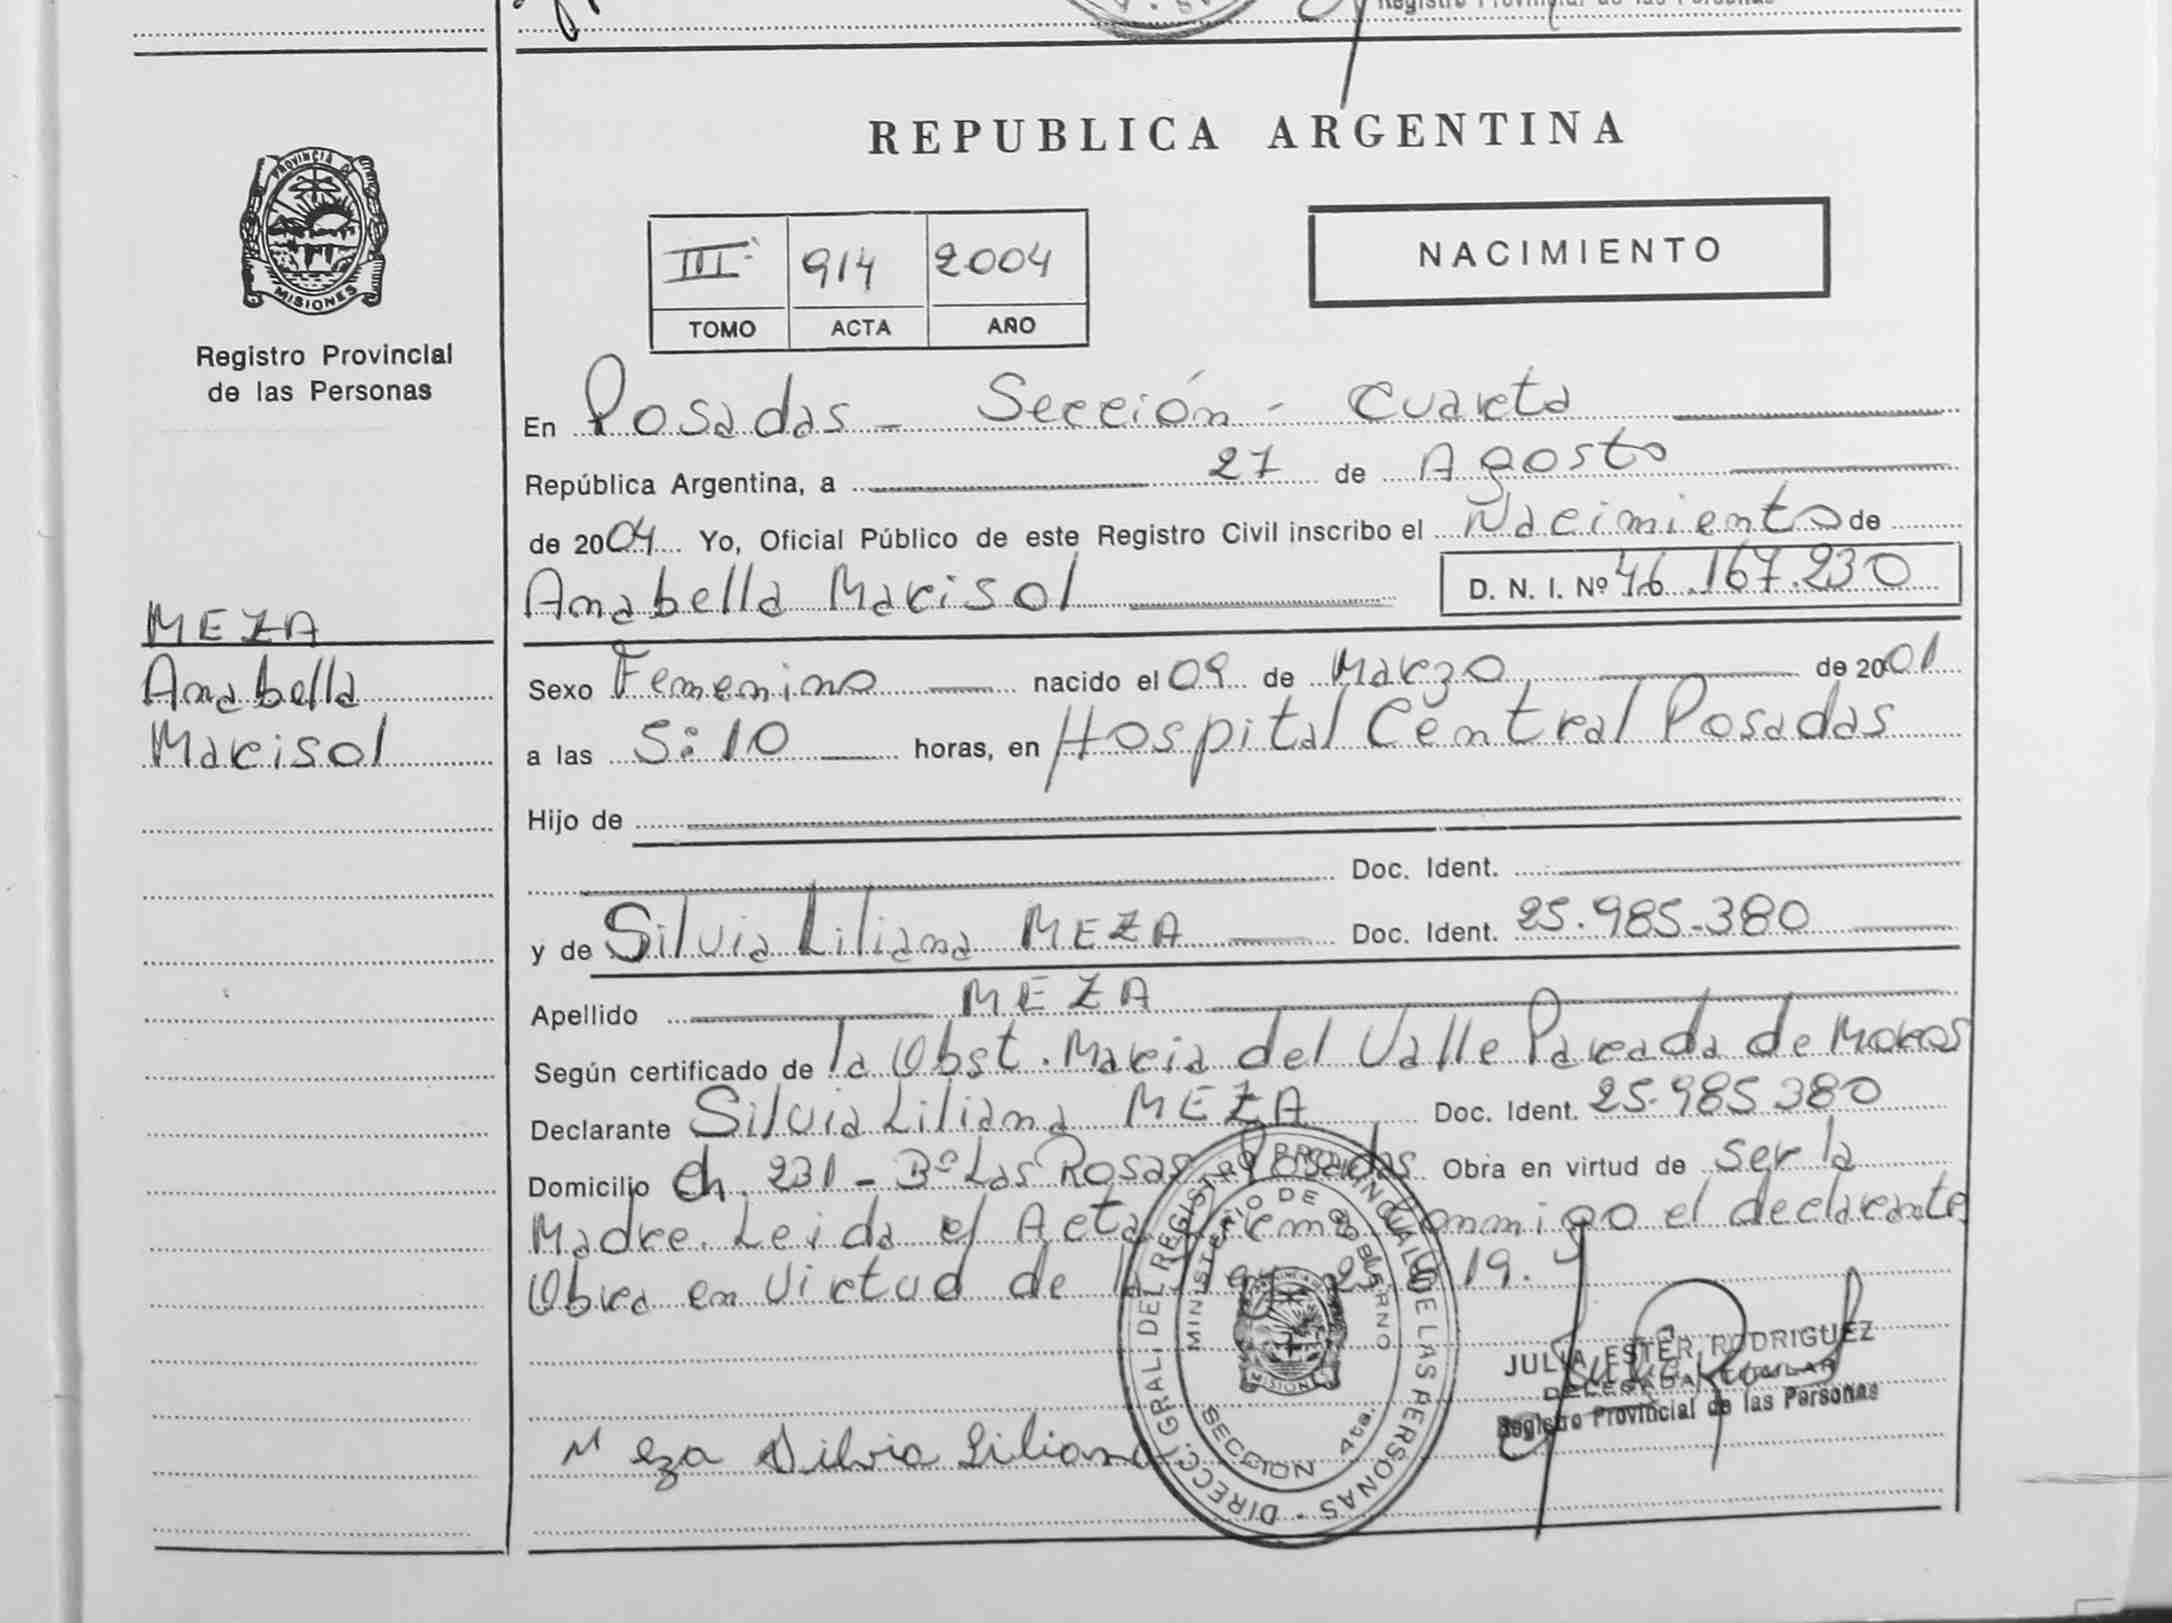 Registro Provincial de las Personas
REPUBLICA ARGENTINA
PROVINCIA DE
MISIONES
Registro Provincial
de las Personas
III 914 2004
TOMO ACTA AÑO
NACIMIENTO
En Posadas - Sección - Cuarta
República Argentina, a 27 de Agosto
de 2004 Yo, Oficial Público de este Registro Civil inscribo el Nacimiento de
Anabella Marisol D. N. I. Nº 46.167.230
MEZA
Anabella
Marisol
Sexo Femenino nacido el 09 de Marzo de 2001
a las 5:10 horas, en Hospital Central Posadas
Hijo de
Doc. Ident.
y de Silvia Liliana MEZA Doc. Ident. 25.985.380
Apellido MEZA
Según certificado de la Obst. Maria del Valle Parada de
Declarante Silvia Liliana MEZA Doc. Ident. 25.985380
Domicilio Ch. 231 - Bº Las Rosas Posadas Obra en virtud de ser la
Madre. Leida el Acta conmigo el declarante
Obra en Virtud de
DIRECC. GRAL. DEL REGISTRO PROVINCIAL DE LAS PERSONAS
MINISTERIO DE GOBIERNO
MISIONES
SECCION 4ta.
JULIA ESTER RODRIGUEZ
DELEGADA TITULAR
Registro Provincial de las Personas
Meza Silvia Liliana